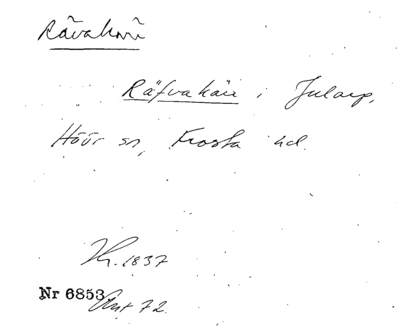 Rävakärr
Räfvakärr i Jularp,
Höör sn, Frosta hd.
1837
Nr 6853
Ant 72.